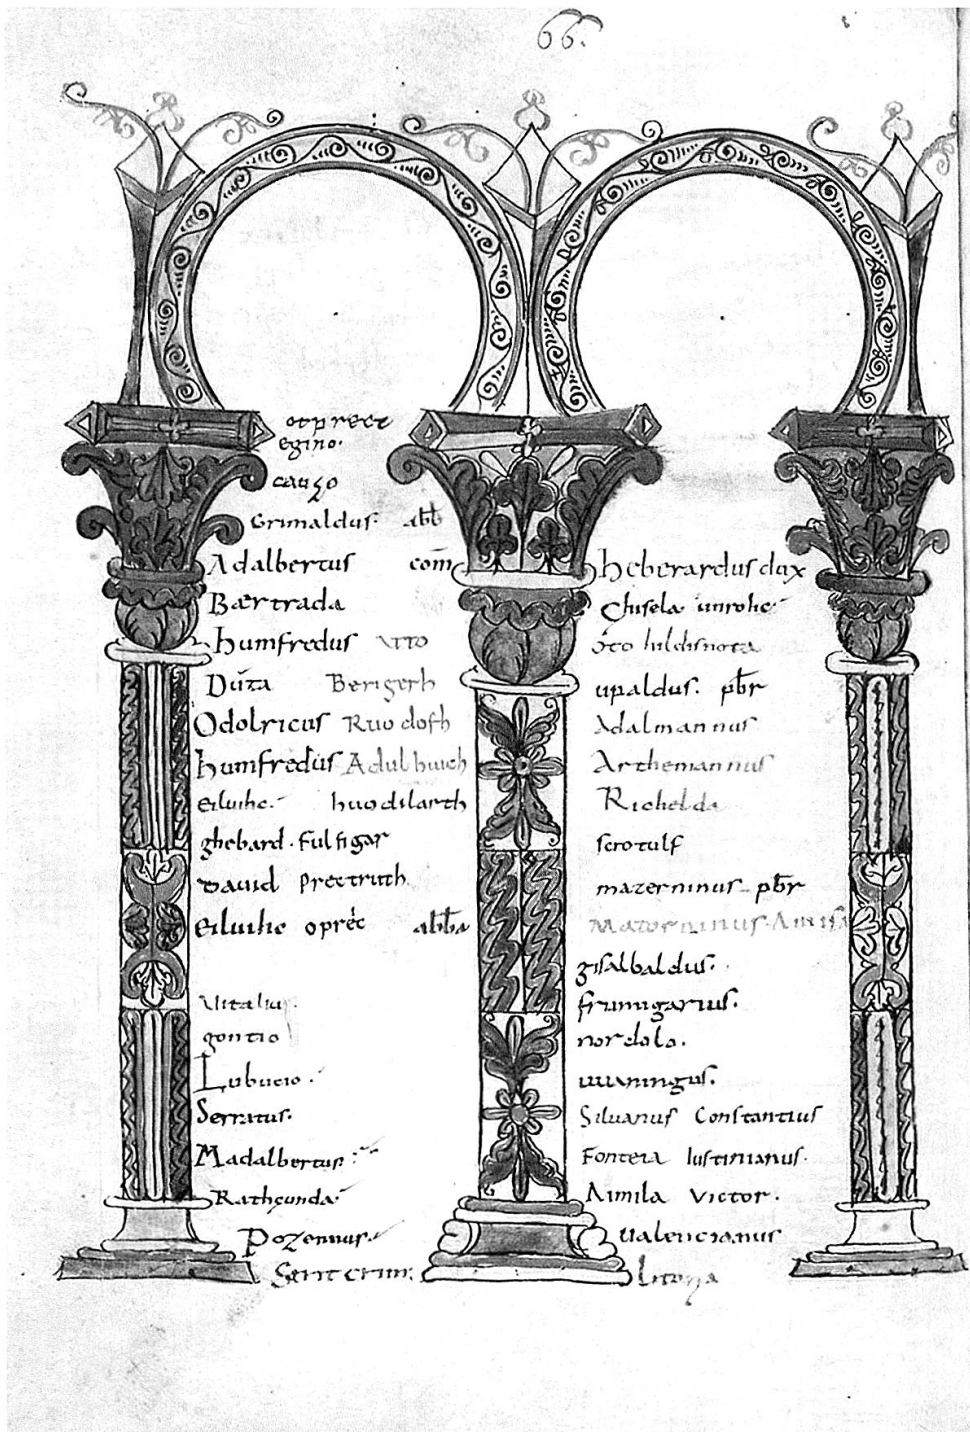 66.
egino.
cauzo
Grimaldus abb
Adalbertus com
Bærtrada
humfredus Atto
Duza Berigerh
Odolricus Ruodolh
humfredus Adulhuich
eiluihc. huodilarth
ghebard. fulfigar
David prectruth
eiluihc oprec abba
Vitalius.
gontio
Lubucio.
Serratus.
Madalbertus
Rathcunda.
pozennus.
heberardus dux
Chisela unrohc
hildisnota
upaldus. pbr
Adalmannus
Arthemannus
Richelda
scrotulf
mazerninus pbr
Materninus.
gisalbaldus.
frumigarius.
nordolo.
uuaningus.
Siluanus Constantius
Fonteia Iustinianus.
Aimila Victor.
Ualencianus